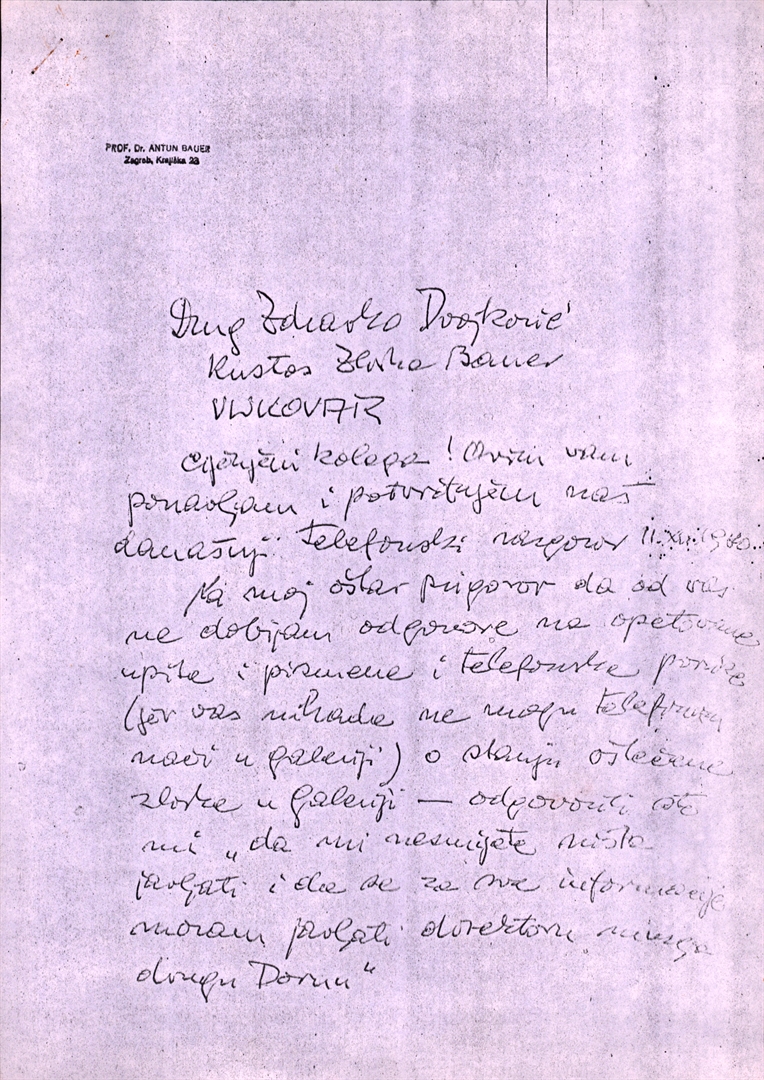 PROF. Dr. ANTUN BAUER
Zagreb, Krajiška 23
Drug Zdravko Dvojković
Kustos Zbirke Bauer
VUKOVAR
Cijenjeni kolega! Ovim vam
ponavljam i potvrđujem naš
današnji telefonski razgovor 11.XII.1980.
Na moj oštar prigovor da od vas
ne dobijam odgovore na opetovane
upite i pismene i telefonske poruke
(jer vas nikada ne mogu telefonom
naći u galeriji) o stanju oštećene
zbirke u Galeriji — odgovorili ste
mi „da mi nesmijete ništa
javljati i da se za sve informacije
moram javljati direktoru muzeja
drugu Dornu"